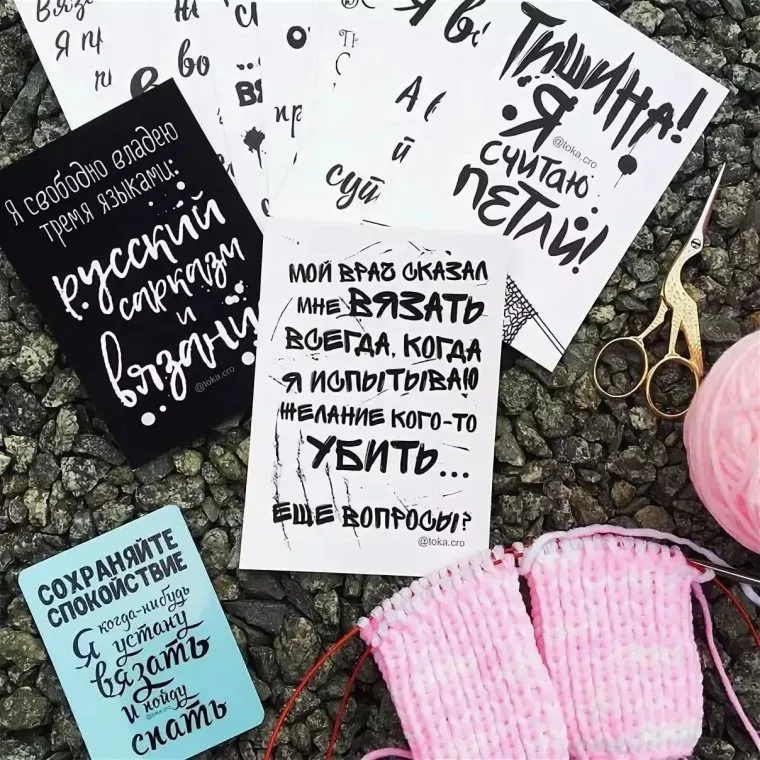 Вяз
Я п
во
Я в
А
й
суй
ТИШИНА!
Я
@toka.cro
СЧИТАЮ
ПЕТЛИ!
Я свободно владею
тремя языками:
русский
сарказм
и
вязаний
@toka.cro
МОЙ ВРАЧ СКАЗАЛ
МНЕ ВЯЗАТЬ
ВСЕГДА, КОГДА
Я ИСПЫТЫВАЮ
ЖЕЛАНИЕ КОГО-ТО
УБИТЬ...
ЕЩЕ ВОПРОСЫ?
@toka.cro
СОХРАНЯЙТЕ
СПОКОЙСТВИЕ
когда-нибудь
Я устану
вязать
и пойду
@toka.cro
спать